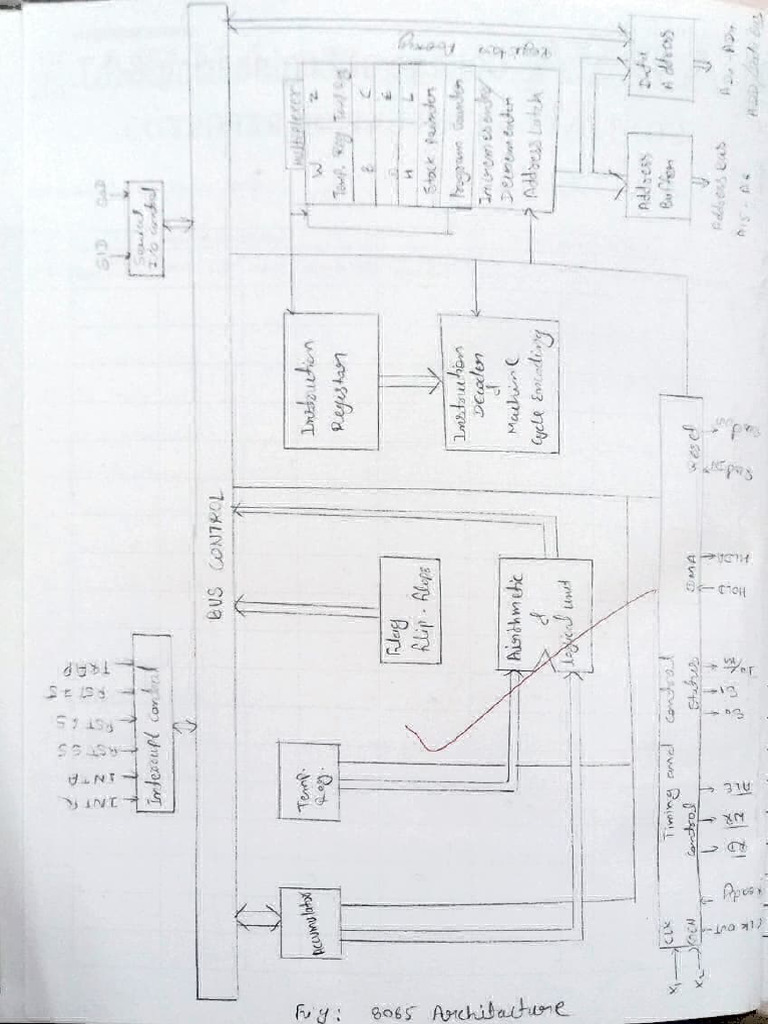 INTR
INTA
RST 5.5
RST 6.5
RST 7.5
TRAP
SID
SOD
Interrupt Control
Serial
I/O Control
BUS CONTROL
Accumulator
Temp.
Reg.
Flag
flip-flops
Arithmetic
&
logical unit
Instruction
Register
Instruction
Decoder
&
Machine
Cycle Encoding
Multiplexer
W
Z
Temp. Reg
B
C
D
E
H
L
Stack Pointer
Program Counter
Incrementer/
Decrementer
Address Latch
Address
Buffer
Data
Address
Address Bus
A15 - A8
X1
X2
CLK
GEN
Timing and control
Control
Status
DMA
Reset
CLK OUT
Ready
RD
WR
ALE
S0
S1
IO/M
HOLD
HLDA
Fig: 8085 Architecture